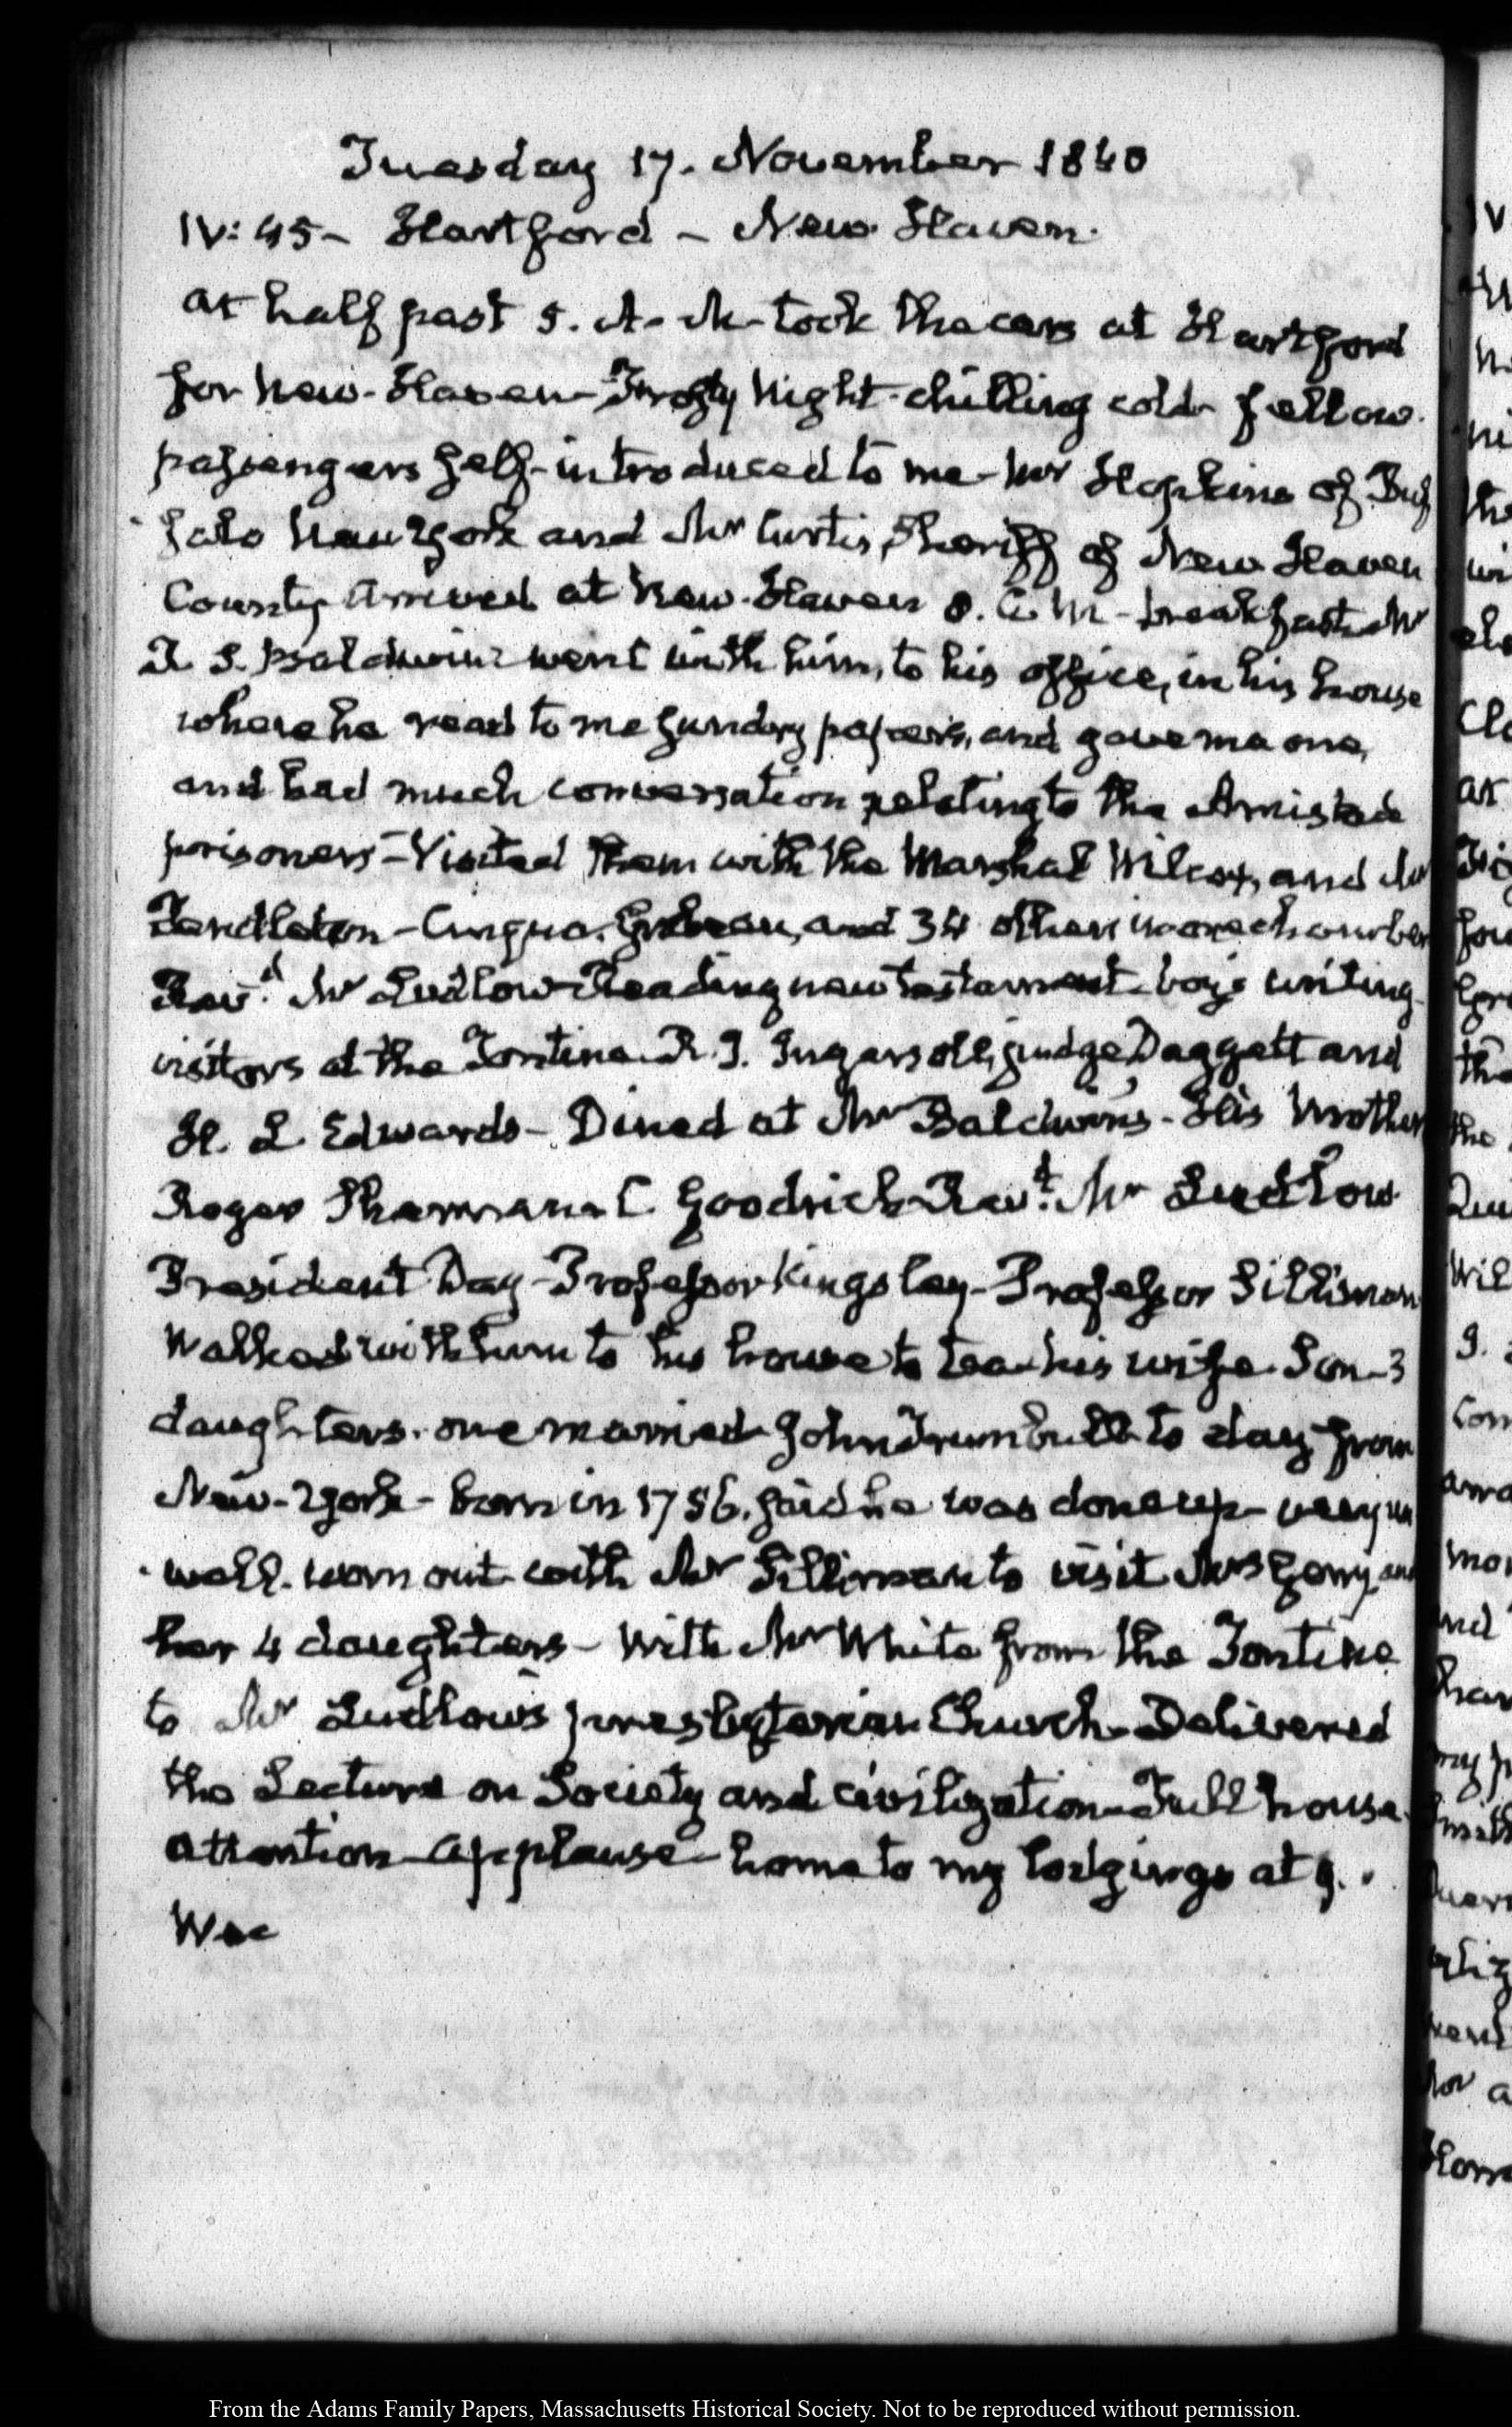 Tuesday 17. November 1840
IV: 45 - Hartford - New Haven.
at half past 5. A. M. took the cars at Hartford
for New-Haven - Frosty Night - chilling cold - fellow
passengers self-introduced to me - Mr Hopkins of Buf
falo New York and Mr Curtis, Sheriff of New Haven
County arrived at New-Haven 8. A. M - breakfast - Mr
R. S. Baldwin - went with him, to his office, in his house
where he read to me sundry papers, and gave me one,
and had much conversation relating to the Amistad
prisoners - Visited them with the Marshal Wilcox, and Mr
Pendleton - Cinque. Grabeau, and 34 others in one chamber
Revd. Mr Ludlow - Reading new testament - boys writing
visitors at the Tontine R. I. Ingersoll, judge Daggett and
H. L Edwards - Dined at Mr Baldwin's - His Mother
Roger Sherman. C. Goodrich - Revd. Mr Ludlow
President Day - Professor Kingsley - Professor Silliman
Walked with him to his house to tea - his wife. Son - 3
daughters. one married - John Trumbull to day from
New-York - born in 1756. said he was done up - very un
well. worn out - with Mr Silliman to visit Mrs Gerry and
her 4 daughters - With Mr White from the Tontine
to Mr Ludlow's presbyterian Church - Delivered
the Lecture on Society and civilization - Full house
attention - applause - home to my lodgings at 9.
From the Adams Family Papers, Massachusetts Historical Society. Not to be reproduced without permission.